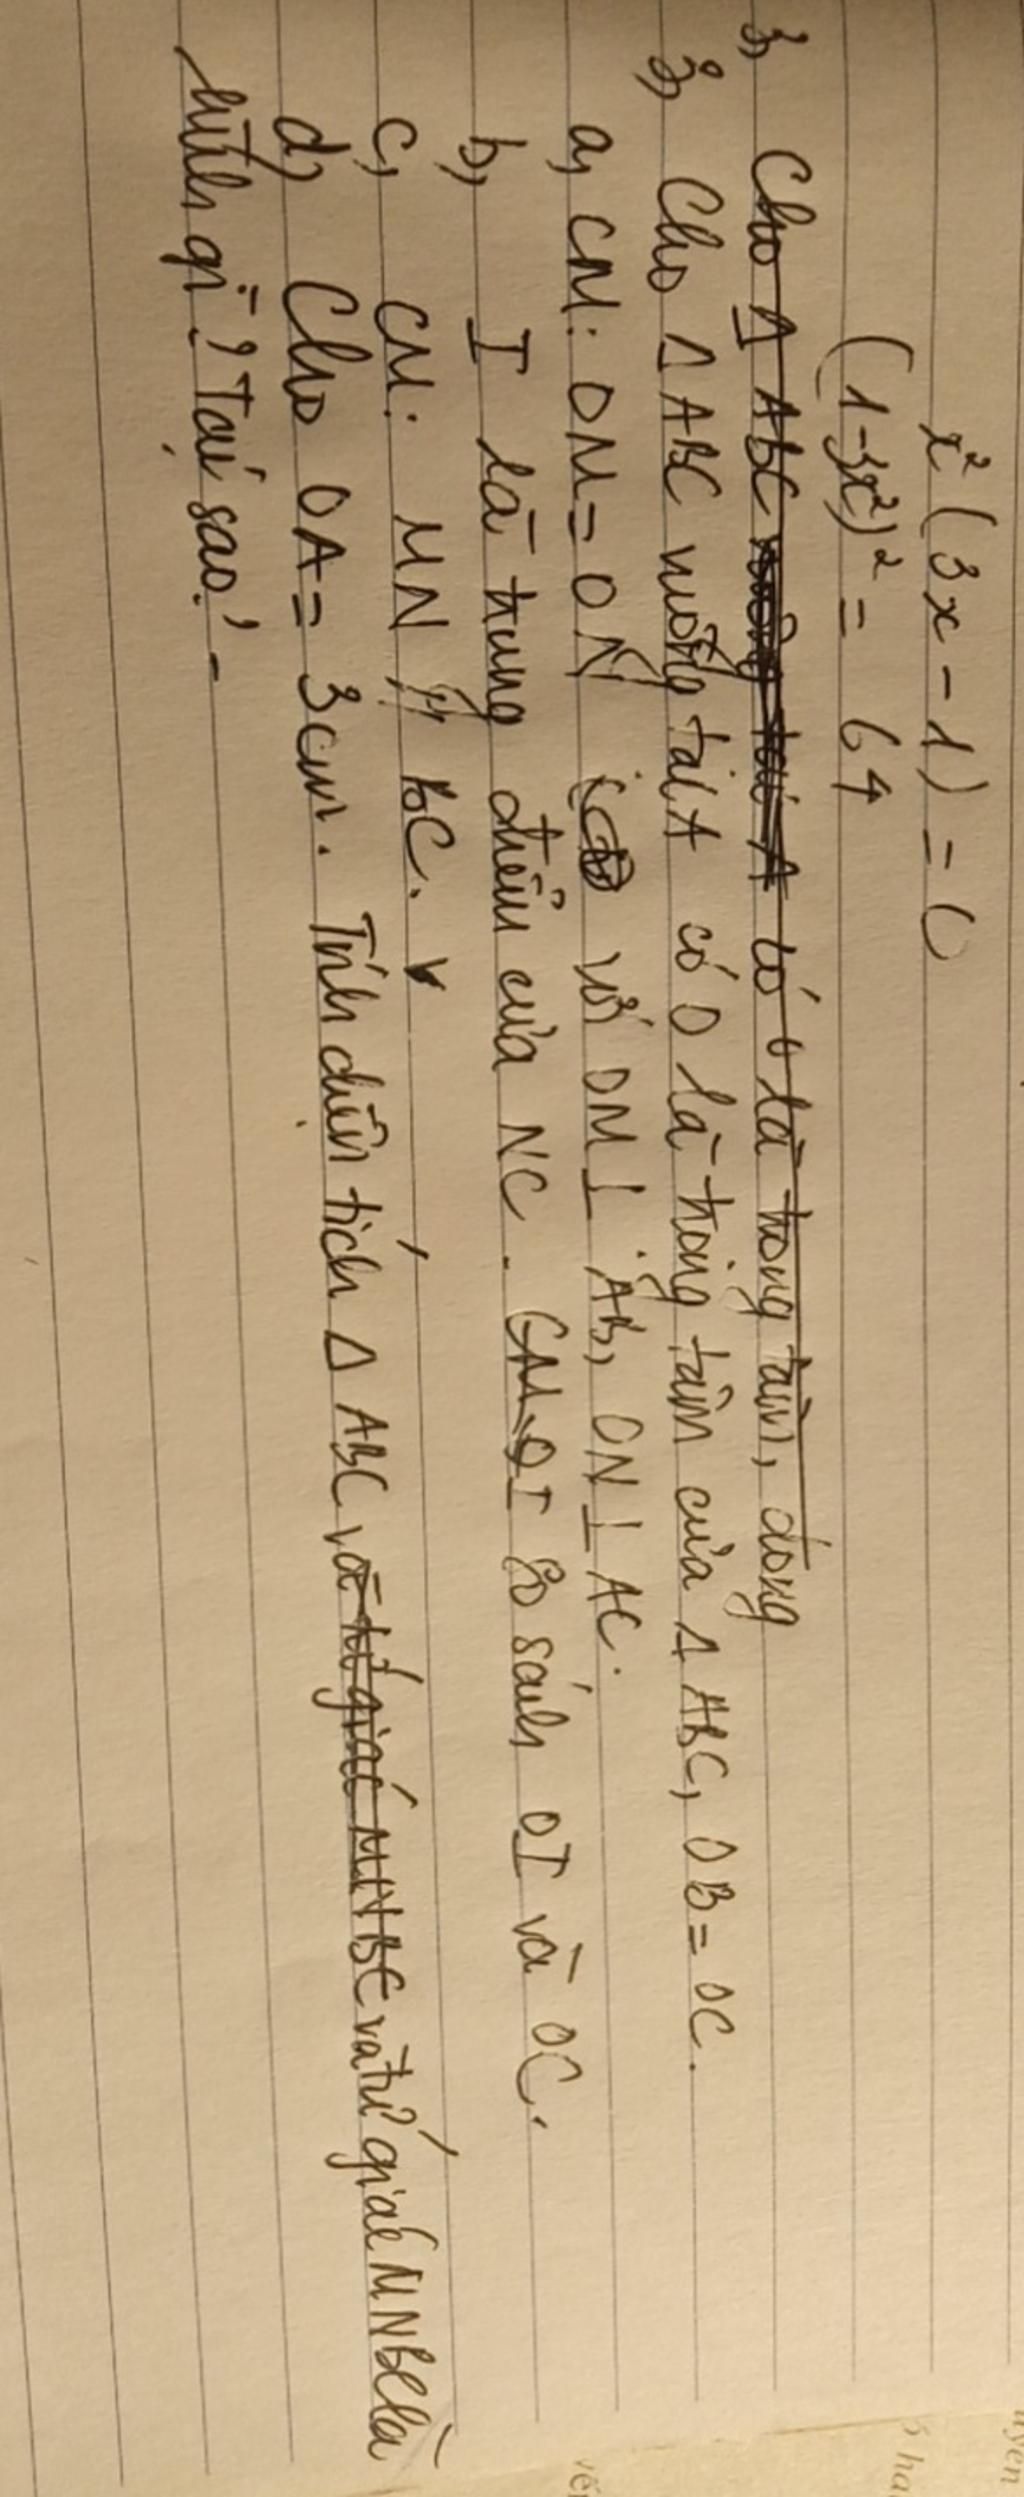 x² (3x - 1) = 0
(1-3x²)² = 64
3, Cho Δ ABC vuông tại A có O là trọng tâm, dong
3, Cho Δ ABC vuông tại A có O là trọng tâm của Δ ABC, OB = OC.
a, CM: OM = ON với OM ⊥ AB, ON ⊥ AC.
b, I là trung điểm của NC. CM OI So sánh OI và OC.
c, CM: MN // BC.
d, Cho OA = 3cm. Tính diện tích Δ ABC và tứ giác MNBC và tứ giác MNBC là
hình gì? Tại sao?